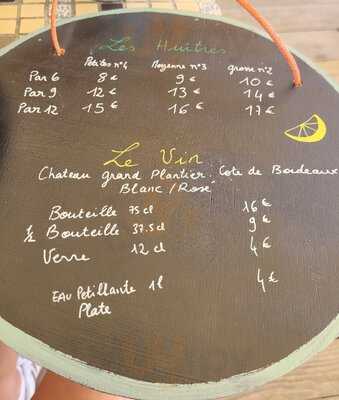 Les Huîtres
Petites n°4 Moyenne n°3 grosse n°2
Par 6 8€ 9€ 10€
Par 9 12€ 13€ 14€
Par 12 15€ 16€ 17€
Le Vin
Chateau grand Plantier. Cote de Bordeaux
Blanc / Rosé
Bouteille 75 cl 16€
½ Bouteille 37.5 cl 9€
Verre 12 cl 4€
EAU Petillante 1l 4€
Plate